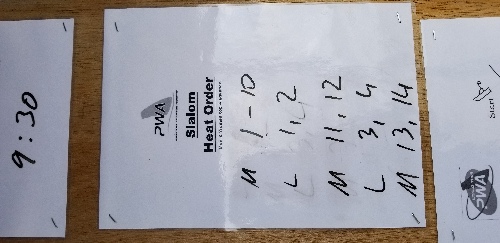 9:30
PWA
Slalom
Heat Order
M 1-10
L 1, 2
M 11, 12
L 3, 4
M 13, 14
PWA